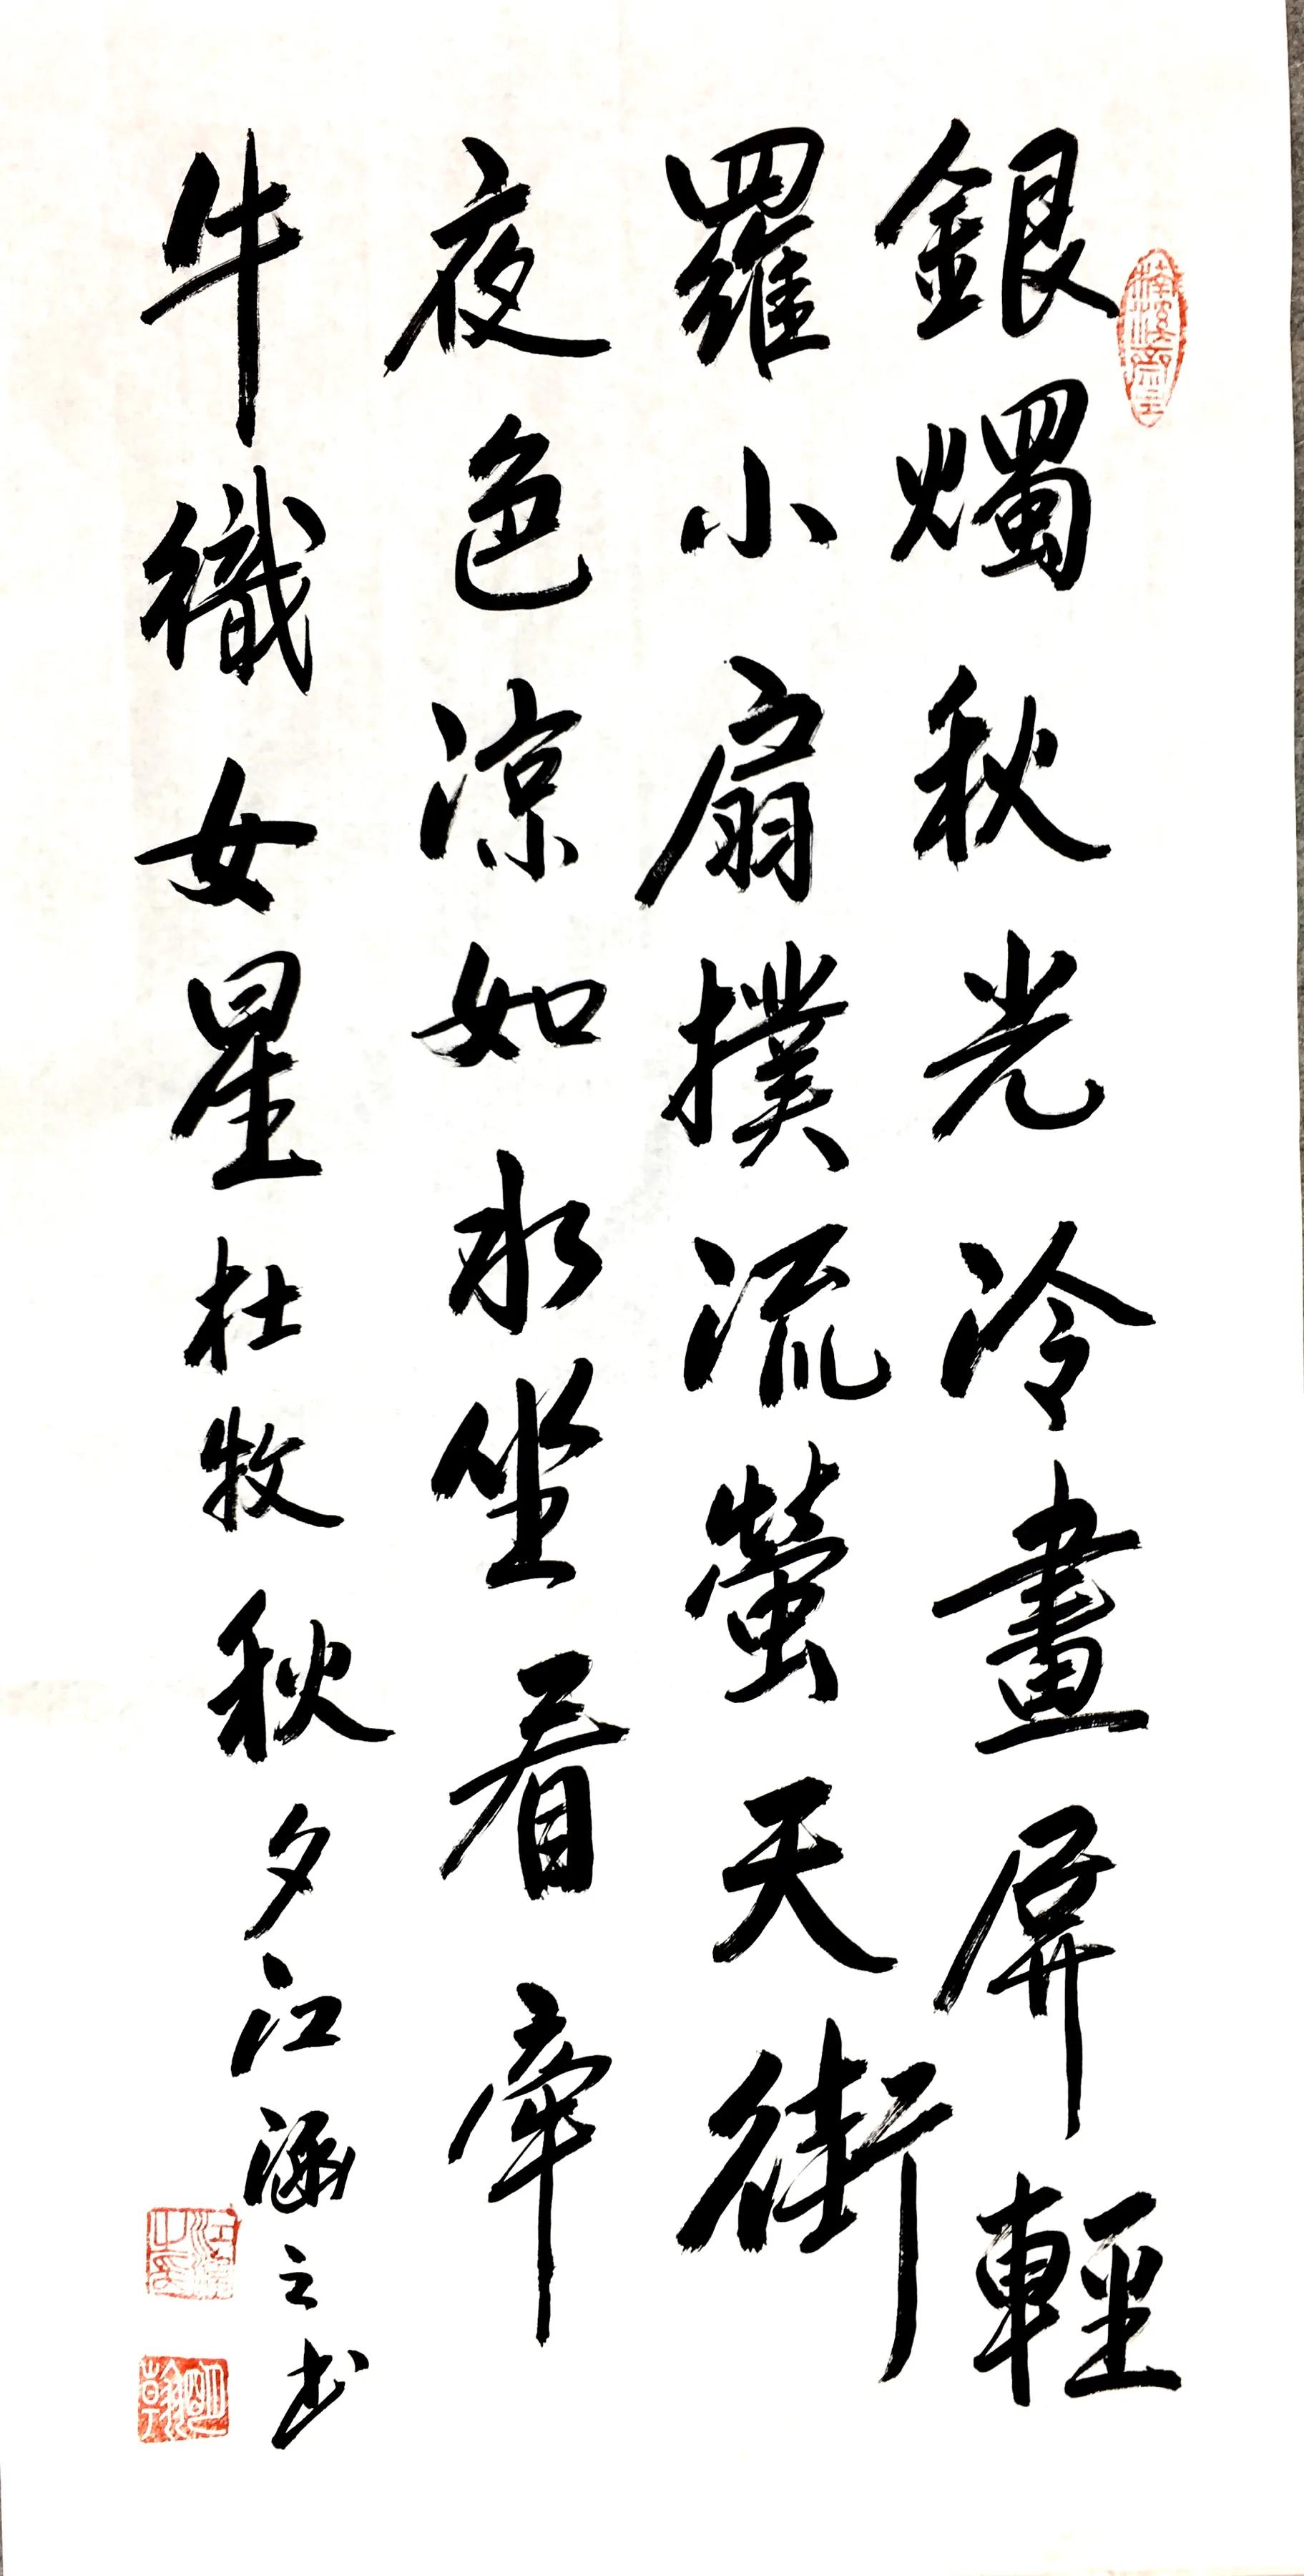 銀燭秋光冷畫屏輕
羅小扇撲流螢天街
夜色涼如水坐看牽
牛織女星杜牧秋夕江涵之书